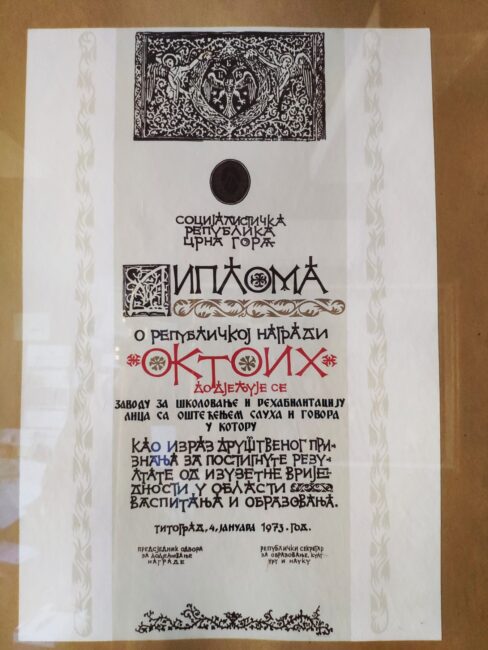 СОЦИЈАЛИСТИЧКА
РЕПУБЛИКА
ЦРНА ГОРА
ДИПЛОМА
О РЕПУБЛИЧКОЈ НАГРАДИ
ОКТОИХ
ДОДЈЕЉУЈЕ СЕ
ЗАВОДУ ЗА ШКОЛОВАЊЕ И РЕХАБИЛИТАЦИЈУ
ЛИЦА СА ОШТЕЋЕЊЕМ СЛУХА И ГОВОРА
У КОТОРУ
КАО ИЗРАЗ ДРУШТВЕНОГ ПРИ-
ЗНАЊА ЗА ПОСТИГНУТЕ РЕЗУ-
ЛТАТЕ ОД ИЗУЗЕТНЕ ВРИЈЕ-
ДНОСТИ У ОБЛАСТИ
ВАСПИТАЊА И ОБРАЗОВАЊА.
ТИТОГРАД, 4. ЈАНУАРА 1973. ГОД.
ПРЕДСЈЕДНИК ОДБОРА
ЗА ДОДЈЕЉИВАЊЕ
НАГРАДЕ
РЕПУБЛИЧКИ СЕКРЕТАР
ЗА ОБРАЗОВАЊЕ, КУЛТ-
УРУ И НАУКУ